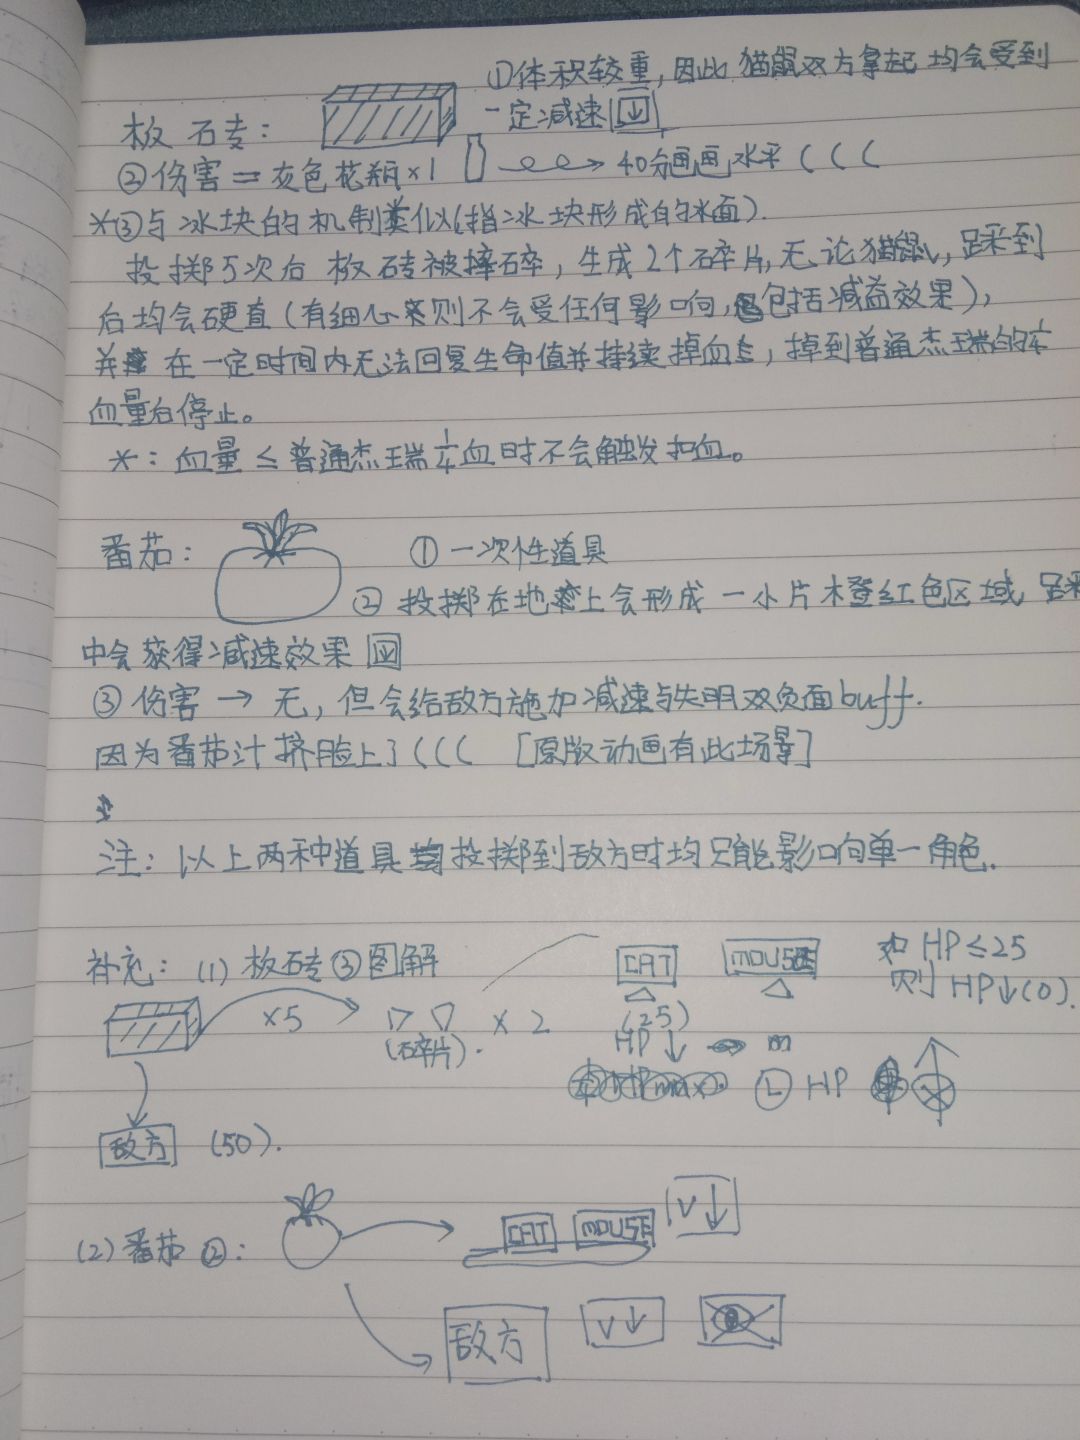 ①体积较重，因此猫鼠双方拿起均会受到
板砖：
一定减速↓
②伤害＝灰色花瓶×1 → 40分画画水平(((
*③与冰块的机制类似(指冰块形成的冰面).
投掷5次后板砖被摔碎，生成2个碎片,无论猫鼠，踩到
后均会硬直(有细心则不会受任何影响,包括减益效果),
并在一定时间内无法回复生命值并持续掉血，掉到普通杰瑞的
血量后停止。
*：血量≤普通杰瑞血时不会触发扣血。
番茄：
①一次性道具
②投掷在地上会形成一小片橙红色区域,踩
中会获得减速效果↓
③伤害→无，但会给敌方施加减速与失明双负面buff.
因为番茄汁挤脸上了((( [原版动画有此场景]
注：以上两种道具投掷到敌方时均只能影响单一角色.
补充：(1)板砖③图解
CAT MOUSE 如HP≤25
则HP↓(0).
×5 (碎片). ×2 (25)
HP↓ m
L HP
敌方 (50).
(2)番茄②：
CAT MOUSE V↓
敌方 V↓